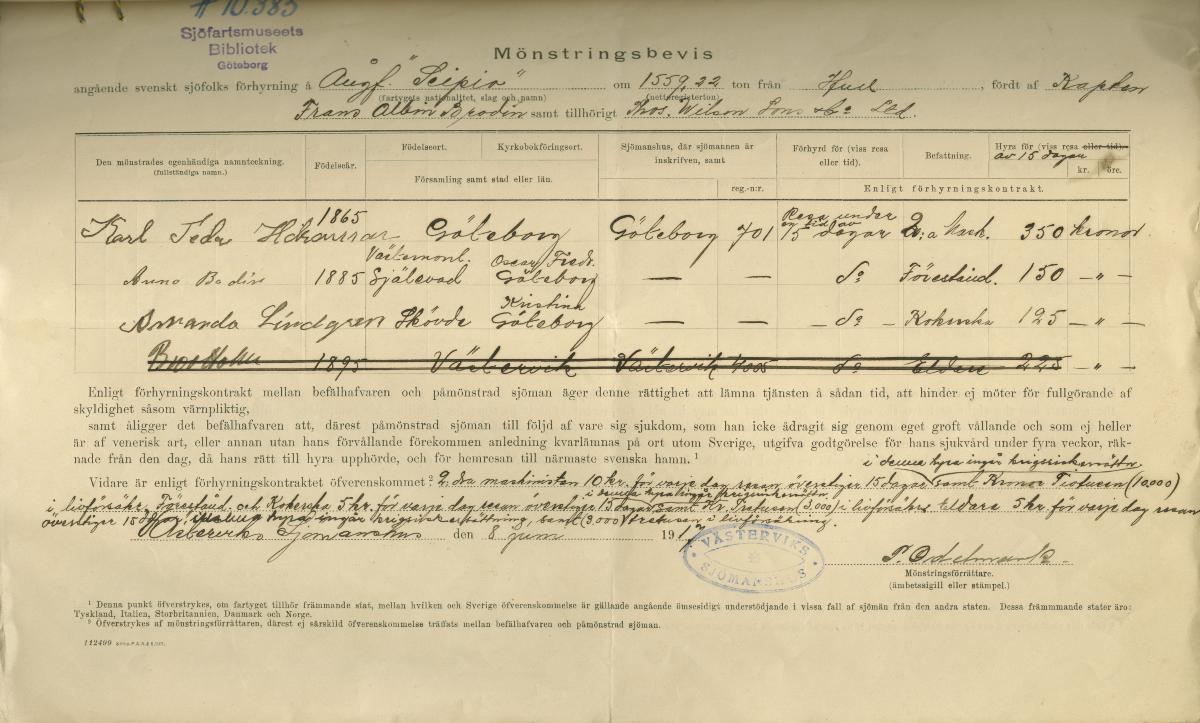 # 10.385
Sjöfartsmuseets
Bibliotek
Göteborg
Mönstringsbevis
angående svenskt sjöfolks förhyrning å Ångf. "Scipio" om 1559,22 ton från Hull, fördt af Kapten
(fartygets nationalitet, slag och namn) (nettoregisterton)
Frans Albin Brodin samt tillhörigt Thos. Wilson Sons & Co Ltd.
Den mönstrades egenhändiga namnteckning.
(fullständiga namn.)
Födelseår.
Födelseort. Kyrkobokföringsort.
Församling samt stad eller län.
Sjömanshus, där sjömannen är
inskrifven, samt
reg.-n:r.
Förhyrd för (viss resa
eller tid).
Befattning.
Hyra för (viss resa eller tid).
av 15 dagar
kr. öre.
Enligt förhyrningskontrakt.
Karl 1865 Göteborg Göteborg 701 Resa under 15 dagar 2:a Mask. 350 kronor
Anna Bodin 1885 Själevad Göteborg — — do Förestånd. 150 — " —
Amanda Lindgren Skövde Kristina Göteborg — — — do — Kokerska 125 — " —
1895 Västervik Västervik 4005 do Eldare 225 — " —
Enligt förhyrningskontrakt mellan befälhafvaren och påmönstrad sjöman äger denne rättighet att lämna tjänsten å sådan tid, att hinder ej möter för fullgörande af
skyldighet såsom värnpliktig,
samt åligger det befälhafvaren att, därest påmönstrad sjöman till följd af vare sig sjukdom, som han icke ådragit sig genom eget groft vållande och som ej heller
är af venerisk art, eller annan utan hans förvållande förekommen anledning kvarlämnas på ort utom Sverige, utgifva godtgörelse för hans sjukvård under fyra veckor, räk-
nade från den dag, då hans rätt till hyra upphörde, och för hemresan till närmaste svenska hamn. ¹
i denna hyra ingår
Vidare är enligt förhyrningskontraktet öfverenskommet: ² 2 dra maskinisten 10 kr. för varje dag resan överstiger 15 dagar samt Kronor Tiotusen (10,000)
i livförsäkr. Förestånd. och Kokerska 5 kr. för varje dag resan överstiger 15 dagar samt Kr. Tretusen (3,000) i livförsäkr. Eldare 5 kr. för varje dag resan
överstiger 15 dagar, hyra ingår krigsriskersättning, samt (3000) tretusen i livförsäkring.
Västerviks Sjömanshus den 8 juni 191
VÄSTERVIKS
SJÖMANSHUS
P. Odelmark
Mönstringsförrättare.
(ämbetssigill eller stämpel.)
¹ Denna punkt öfverstrykes, om fartyget tillhör främmande stat, mellan hvilken och Sverige öfverenskommelse är gällande angående ömsesidigt understödjande i vissa fall af sjömän från den andra staten. Dessa främmande stater äro:
Tyskland, Italien, Storbritannien, Danmark och Norge.
² Öfverstrykes af mönstringsförrättaren, därest ej särskild öfverenskommelse träffats mellan befälhafvaren och påmönstrad sjöman.
112499